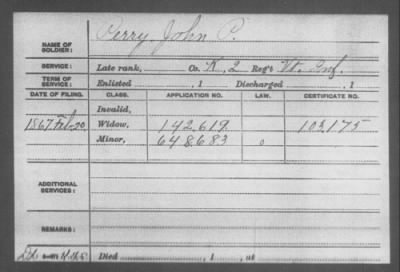 NAME OF SOLDIER: Perry, John P.
SERVICE: Late rank, Co. K, 2 Reg't Vt. Inf.
TERM OF SERVICE: Enlisted , 1 Discharged , 1
DATE OF FILING. CLASS. APPLICATION NO. LAW. CERTIFICATE NO.
Invalid,
1867 Feb. 20 Widow, 142.619. 103,175
Minor, 648.683 0
ADDITIONAL SERVICES:
REMARKS:
Died , 1 , at